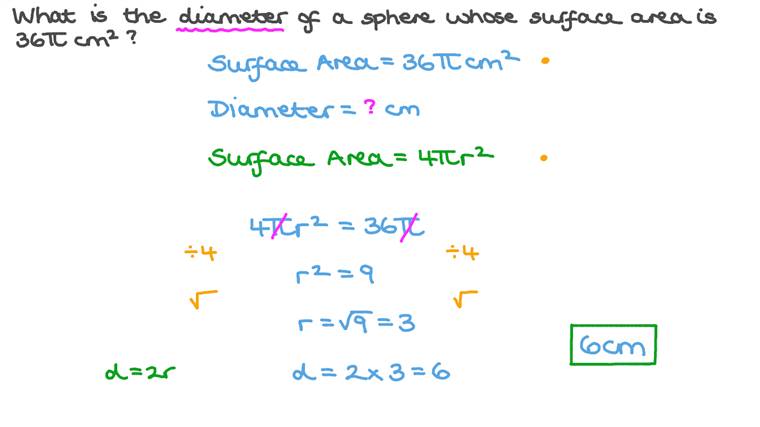 What is the diameter of a sphere whose surface area is
36π cm² ?
Surface Area = 36π cm²
Diameter = ? cm
Surface Area = 4πr²
4πr² = 36π
÷4 ÷4
r² = 9
√ √
r = √9 = 3
6cm
d = 2r d = 2 × 3 = 6